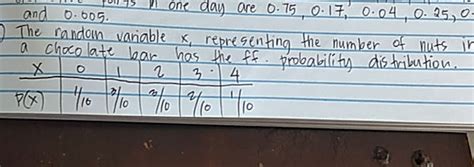 in one day are 0.75, 0.17, 0.04, 0.25,
and 0.005.
The random variable x, representing the number of nuts in
a chocolate bar has the ff. probability distribution.
X 0 1 2 3 4
P(X) 1/10 3/10 3/10 2/10 1/10